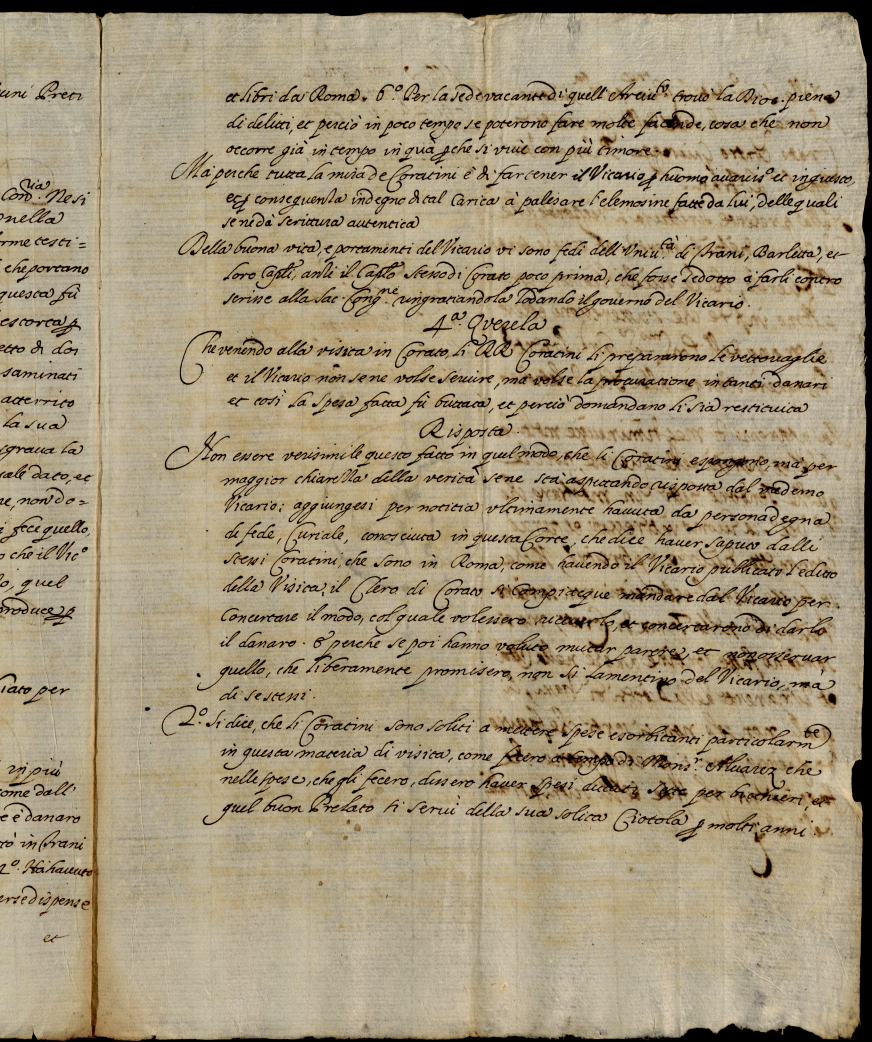 uni Preti
Cond.ria Ne si
nella
rme testi=
che portano
questa fù
escorta p
etto di doi
saminati
atterrito
la sua
grava la
uale dato, et
ne, non do=
i fece quello,
o che il Vic.o
lo, quel
produce p
iato per
in più
come dall'
e è danaro
tò in Trani
2.o Ha havuto
erse dispense
et
et libri da Roma. 6.o Per la sede vacante di quell' Arciv.to trovò la Dioc. piena
di delitti, et perciò in poco tempo se poterono fare molte facende, cosa che non
occorre già in tempo in quà, perche si vive con più timore
Mà perche tutta la mira de Coratini è di far tener il Vicario p huomo avaris.o et ingiusto,
et p conseguenza indegno di tal Carica à palesare l'elemosine fatte da lui, delle quali
se ne dà scrittura autentica
Della buona vita, e portamenti del Vicario vi sono fedi dell' Univ.tà di Trani, Barletta, et
loro Cap.li, anzi il Cap.lo stesso di Corato poco prima, che fosse sedotto à farli contro
scrisse alla Sac. Cong.ne ringratiandola lodando il governo del Vicario.
4.a Querela
Che venendo alla visita in Corato, li RR Coratini li prepararono le vettovaglie
et il Vicario non se ne volse servire, ma volse la procuratione in tanti danari
et così la spesa fatta fù buttata, et perciò domandano li sia restituita
Risposta.
Non essere verisimile questo fatto in quel modo, che li Coratini espongono, mà per
maggior chiarezza della verità se ne stà aspettando risposta dal medemo
Vicario; aggiungesi per notitia ultimamente havuta da persona degna
di fede, Curiale, conosciuta in questa Corte, che dice haver saputo dalli
stessi Coratini, che sono in Roma, come havendo il Vicario publicato l'editto
della Visita, il Clero di Corato si compiteque mandare dal Vicario per
concertare il modo, col quale volessero riceverlo, et concertarono di darlo
il danaro. E perche se poi hanno voluto mutar parere, et non osservar
quello, che liberamente promisero, non si lamentino del Vicario, mà
di se stessi.
2.o Si dice, che li Coratini sono soliti a mettere spese esorbitanti particolarm.te
in questa materia di visita, come fecero a tempo di Mons.r Alvarez che
nelle spese, che gli fecero, dissero haver spesi ducati sette per bicchieri, et
quel buon Prelato si servì della sua solita Ciotola p molti anni.